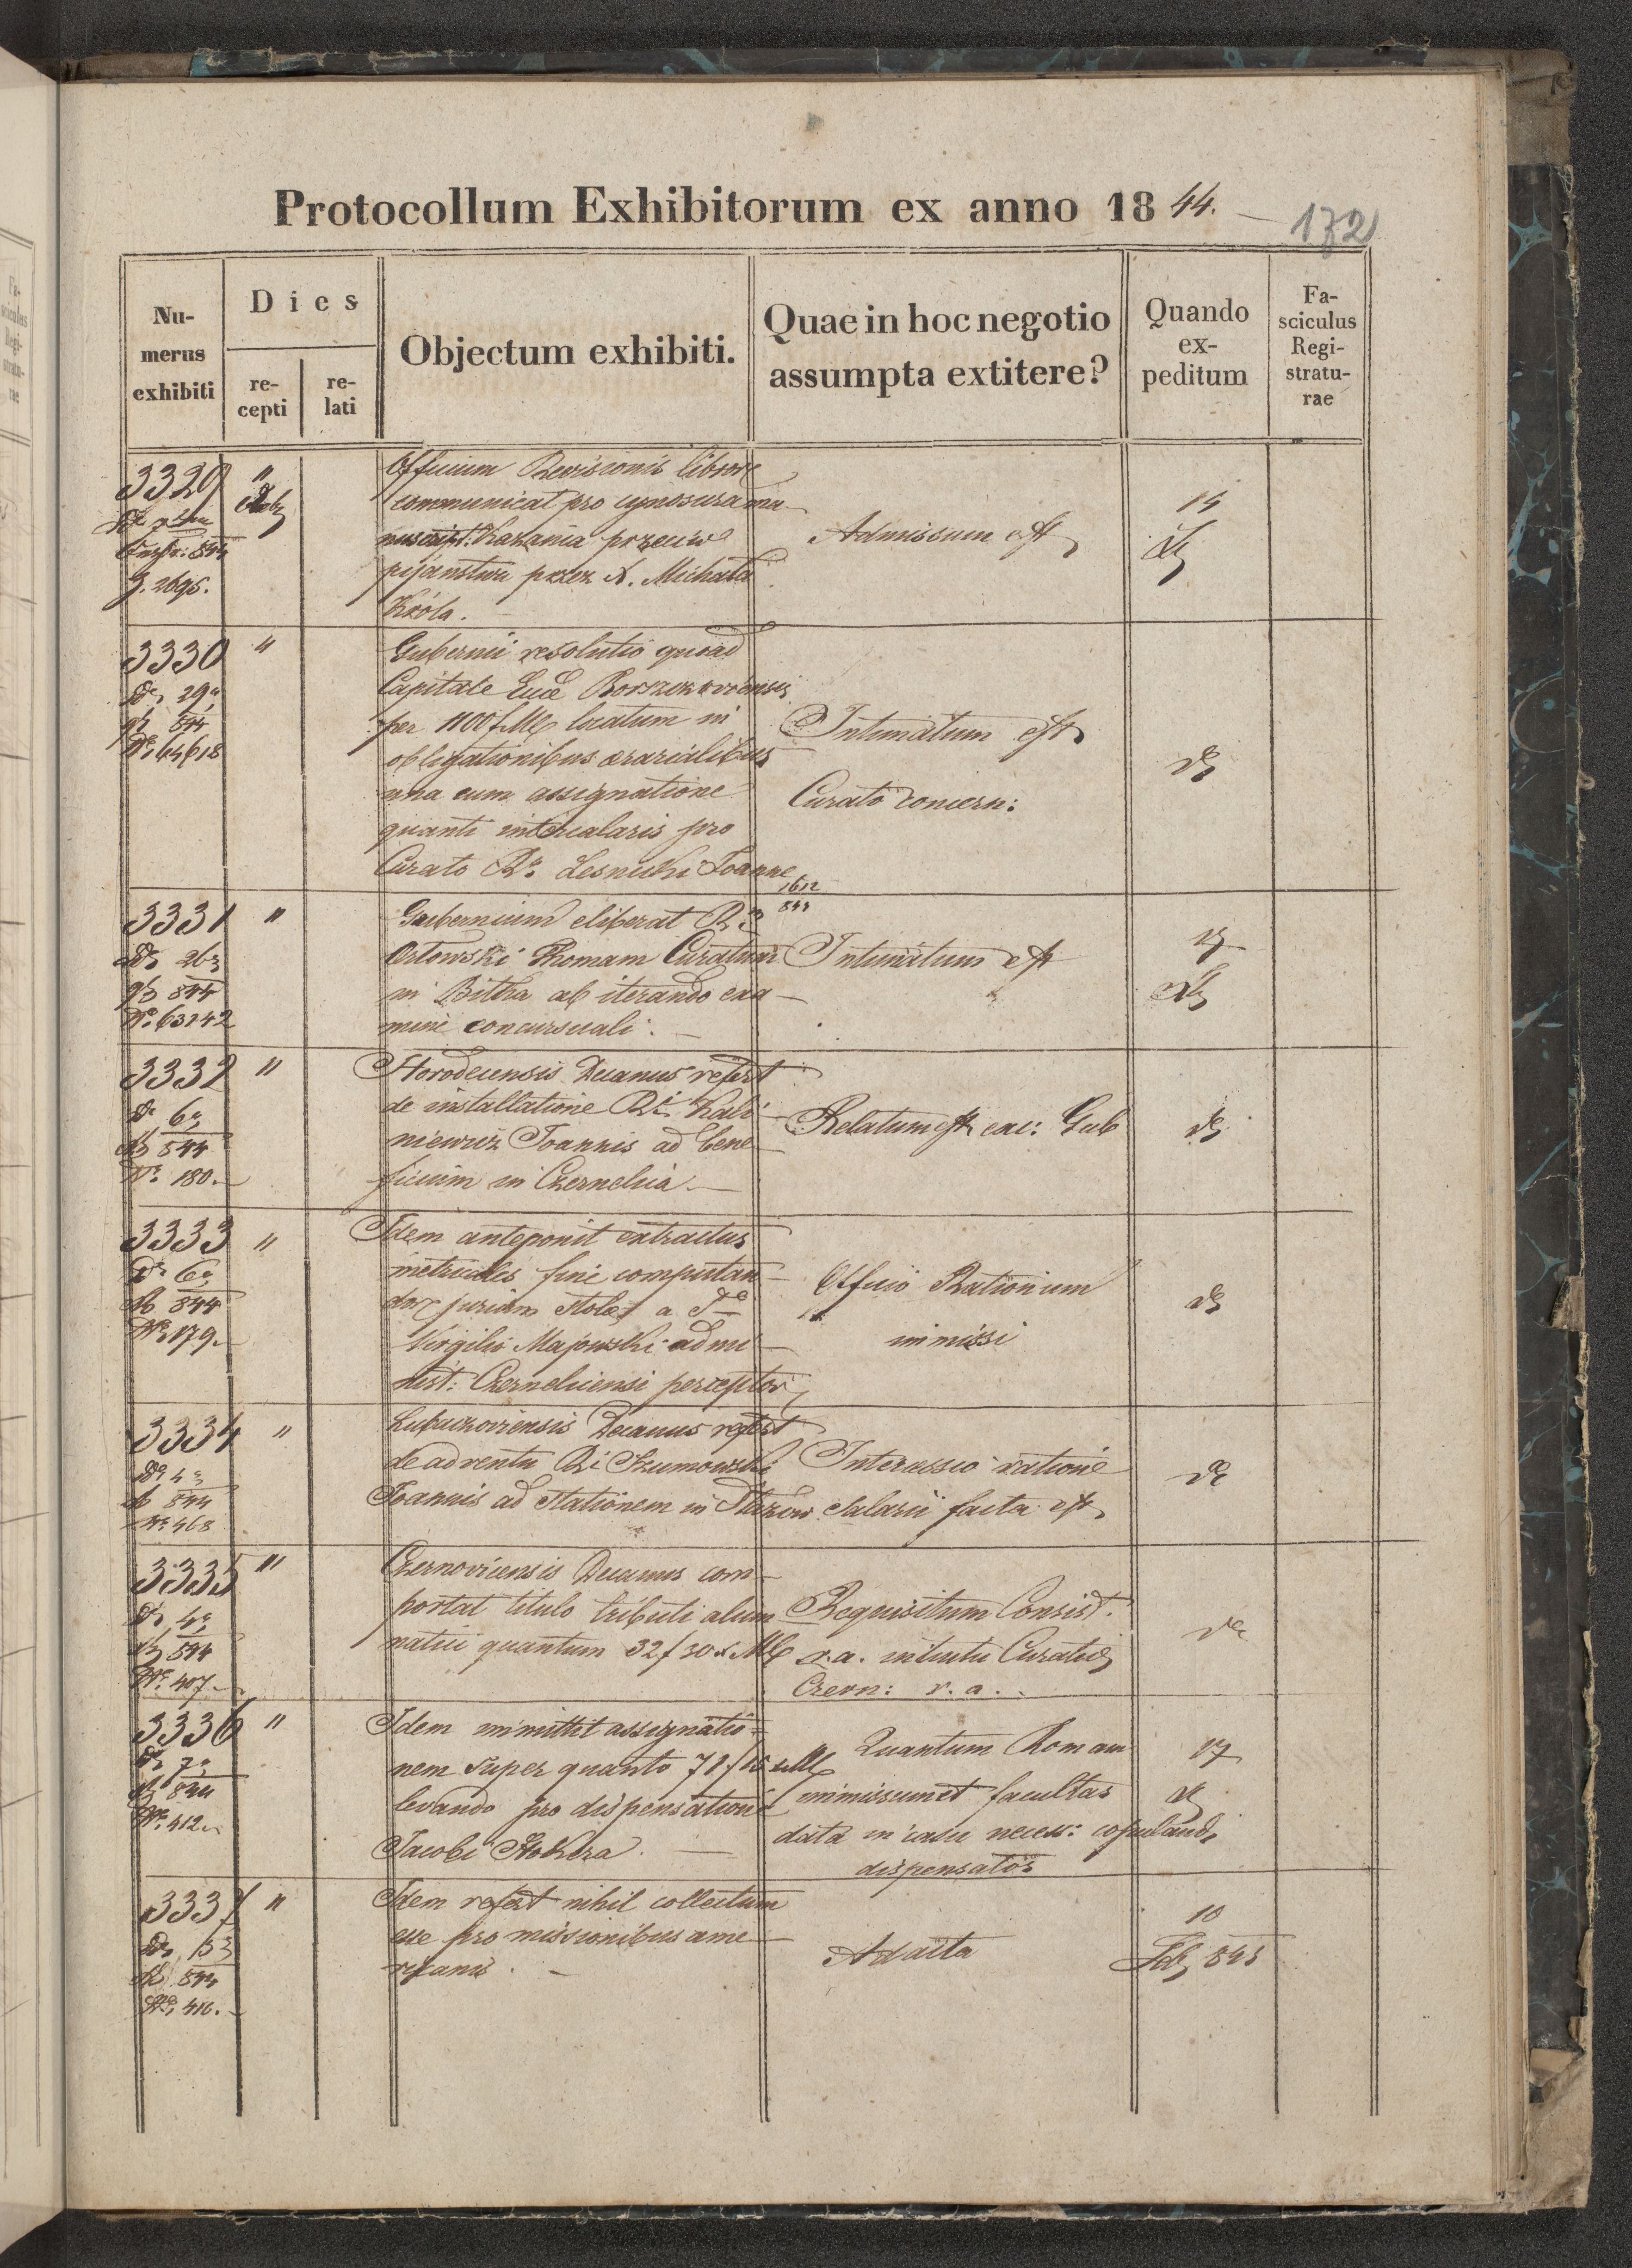 Protocollum Exhibitorum ex anno 1844.
172
Numerus exhibiti
Dies
recepti
relati
Objectum exhibiti.
Quae in hoc negotio assumpta extitere?
Quando expeditum
Fasciculus Registraturae
3329 "
844
Z. 2695.
Officium Revisionis libror
communicat pro cynosura ma-
nuscript: Kazania przeciw
pijaństwu przez X. Michała
Króla.
Admissum est
14
3330 "
844
No 64618
Gubernii resolutio quoad
Capitale Eccl.
per 1100 f. locatum in
obligationibus aerarialibus
una cum assignatione
quanti intercalaris pro
Curato Ro. Lesnicki Joanne
Intimatum est
Curato concern:
3331 "
26
844
No. 63242
Gubernium eliberat R
1612
844
Orłowski Thomam Curatum
in Bitka ab iterando exa-
mine concursuali.
Intimatum est
17
3332 "
6
844
No. 180.
Horodecensis Decanus refert
de installatione Ri Kali-
niewicz Joannis ad bene-
ficium in Czernelica.
Relatum est exc: Gub
3333 "
6
844
No 179.
Idem anteponit extractus
metricales fine computan-
dor jurium stolae a
Virgilio Majewski admi-
nist: Czernelicensi perceptor
Officio Rationum
immissi
3334 "
4
844
No 468
Lubaczoviensis Decanus refert
de adventu Ri Szumowski
Joannis ad Stationem in
Intercessio ratione
Salarii facta est
3335 "
4
844
No. 407.
Czernoviensis Decanus com-
portat titulo tributi alum
natici quantum 32 f 30 x
Requisitum Consist.
r. a. intuitu
Czern: r. a.
3336 "
7
844
No. 412.
Idem immittit assignatio=
nem super quanto 71 f 15 x
levando pro dispensatione
Jacobi
Quantum Romam
immissum et facultas
data in casu necess: copulandi
dispensatos
17
3337 "
13
844
No. 416.
Idem refert nihil collectum
esse pro missionibus ame-
ricanis.
Ad acta
10
Feb 845